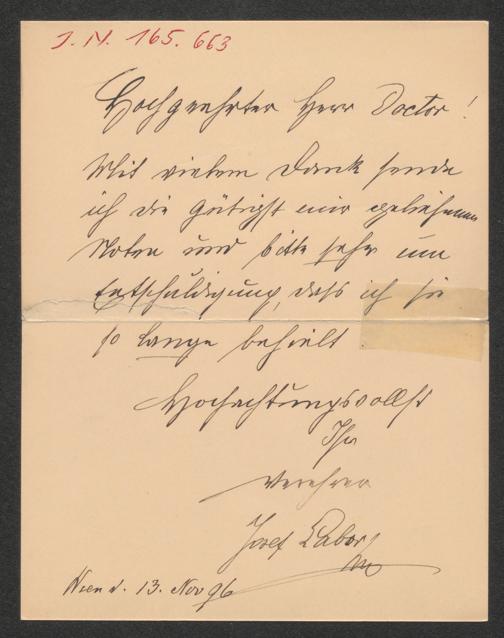 I. N. 165.663
Hochgeehrter Herr Doctor!
Mit vielem Dank sende
ich die gütigst mir geliehenen
Noten und bitte sehr um
Entschuldigung, dass ich sie
so lange behielt.
Hochachtungsvollst
Ihr
Verehrer
Josef Labor
Wien d. 13. Nov 96